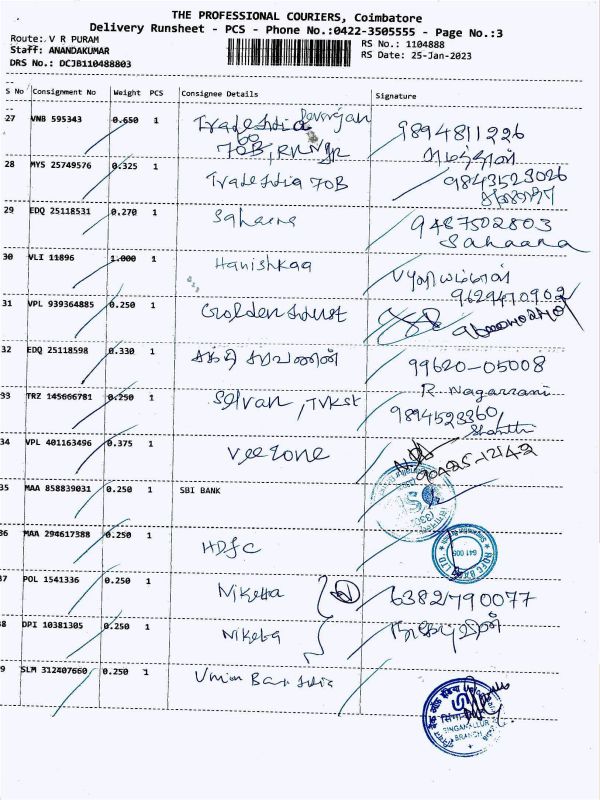 THE PROFESSIONAL COURIERS, Coimbatore
Delivery Runsheet - PCS - Phone No.:0422-3505555 - Page No.:3
Route: V R PURAM
Staff: ANANDAKUMAR
DRS No.: DCJB110488803
RS No.: 1104888
RS Date: 25-Jan-2023
S No Consignment No Weight PCS Consignee Details Signature
27 VNB 595343 0.650 1 Trade India
70B, 9894811226
28 MYS 25749576 0.325 1 Trade India 70B 9843523026
29 EDQ 25118531 0.270 1 Sahaana 9487502803
Sahaana
30 VLI 11896 1.000 1 Hanishkaa
9629470902
31 VPL 939364885 0.250 1 Golden
32 EDQ 25118598 0.330 1 சக்தி சரவணன் 99620-05008
R. Nagarrani
33 TRZ 145666781 0.250 1 Selvan, TVKst 9894523360
Shanthi
34 VPL 401163496 0.375 1 Veezone 90425-12142
35 MAA 858839031 0.250 1 SBI BANK
36 MAA 294617388 0.250 1 HDFC
641 005
37 POL 1541336 0.250 1 Niketha 6382790077
38 DPI 10381305 0.250 1 Niketa
39 SLM 312407660 0.250 1 Union Ban India
SINGANALLUR
BRANCH